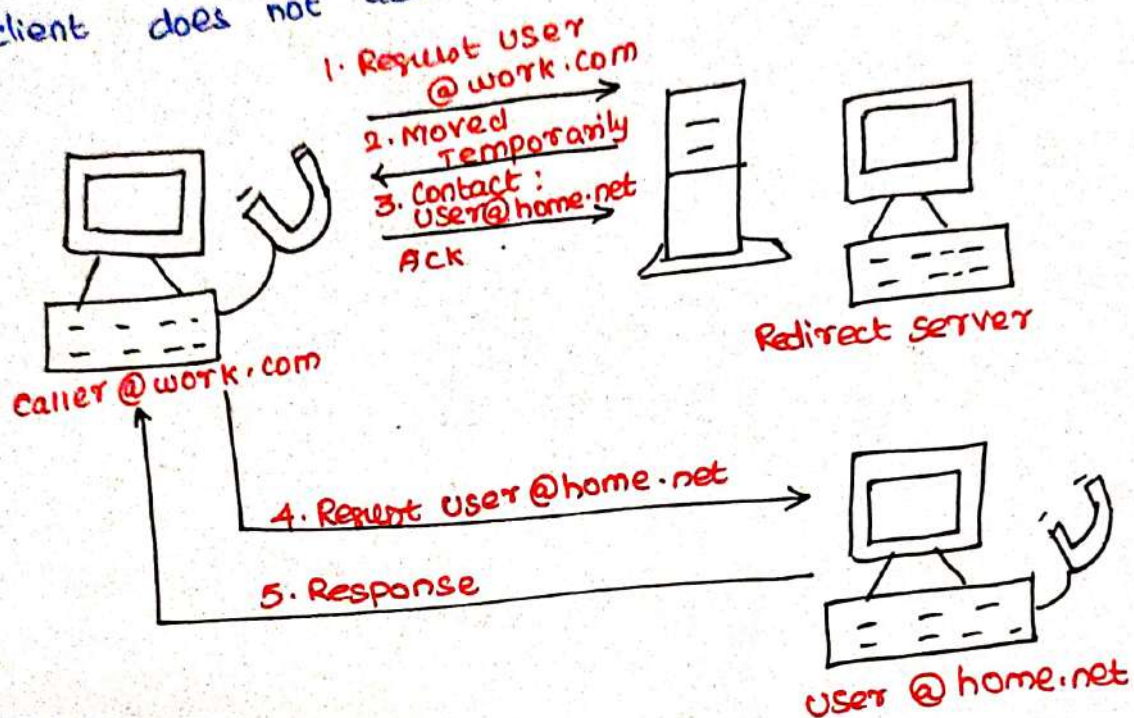 client does not
1. Request user
@ work.com
2. Moved
Temporarily
3. Contact :
user@home.net
ACK
Redirect server
Caller @ work.com
4. Request user @home.net
5. Response
user @ home.net